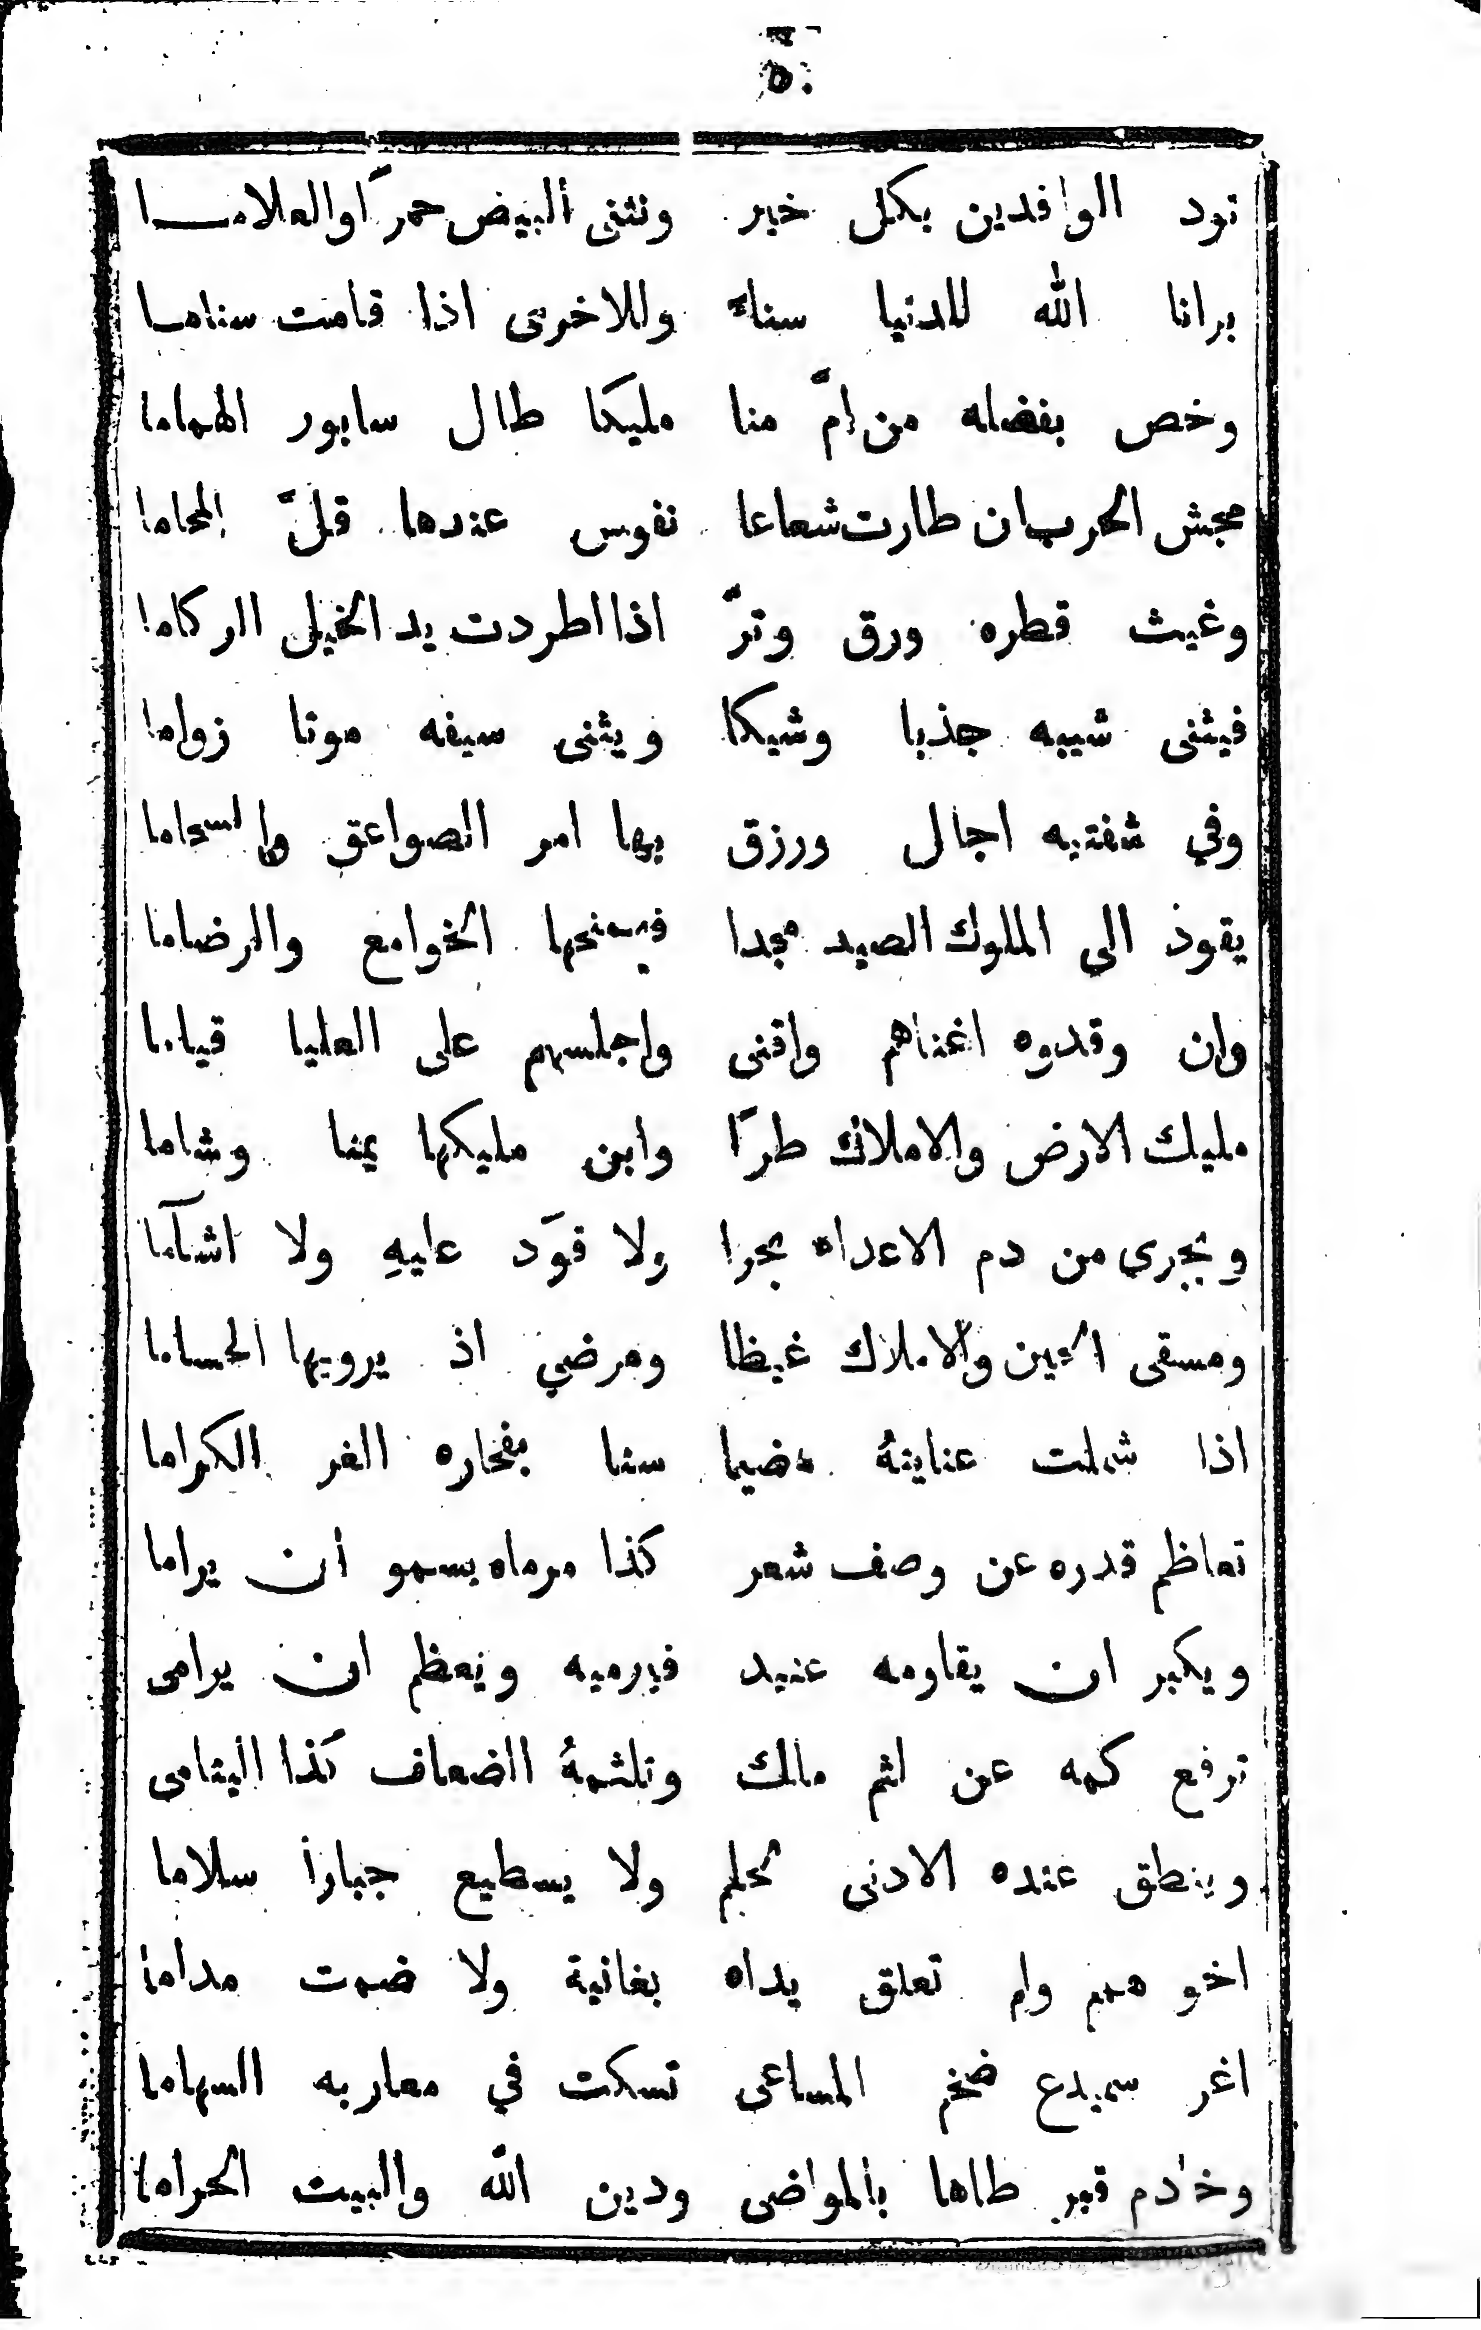 ٥٠
نود الوافدين بكل خير ونثنى البيض حمرًا والعلاما
برانا الله للدنيا سناء وللاخرى اذا قامت سناما
وخص بفضله من امّ منا مليكا طال سابور الهماما
مجش الحرب ان طارت شعاعا نفوس عندها قلّ المحاما
وغيث قطره ورق وترّ اذا اطردت يد الخيل الركاما
فيثنى شيبه جذبا وشيكا ويثنى سيفه موتا زواما
وفي شفتيه اجال ورزق بها امر الصواعق والسحاما
يقوذ الى الملوك الصيد مجدا فيمنحها الخوامع والرضاما
وان وقدوه اغناهم واقنى واجلسهم على العليا قياما
مليك الارض والاملاك طرًا وابن مليكها يمنا وشاما
ويجرى من دم الاعداء بحرا ولا قوَد عليهِ ولا اشآما
ومسقى العين والاملاك غيظا ومرضي اذ يرويها الحساما
اذا شملت عنايتهُ مضيما سنا بفخاره الغر الكراما
تعاظم قدره عن وصف شعر كذا مرماه يسمو ان يراما
ويكبر ان يقاومه عنيد فيرميه ويعظم ان يرامى
ترفع كمه عن لثم مالك وتلثمهُ الضعاف كذا اليتامى
وينطق عنده الادنى بحلم ولا يسطيع جبارا سلاما
اخو همم ولم تعلق يداه بغانية ولا ضمت مداما
اغر سميدع ضخم المساعى تسكت في معاربه السهاما
وخادم قبر طاها بالمواضى ودين الله والبيت الحراما